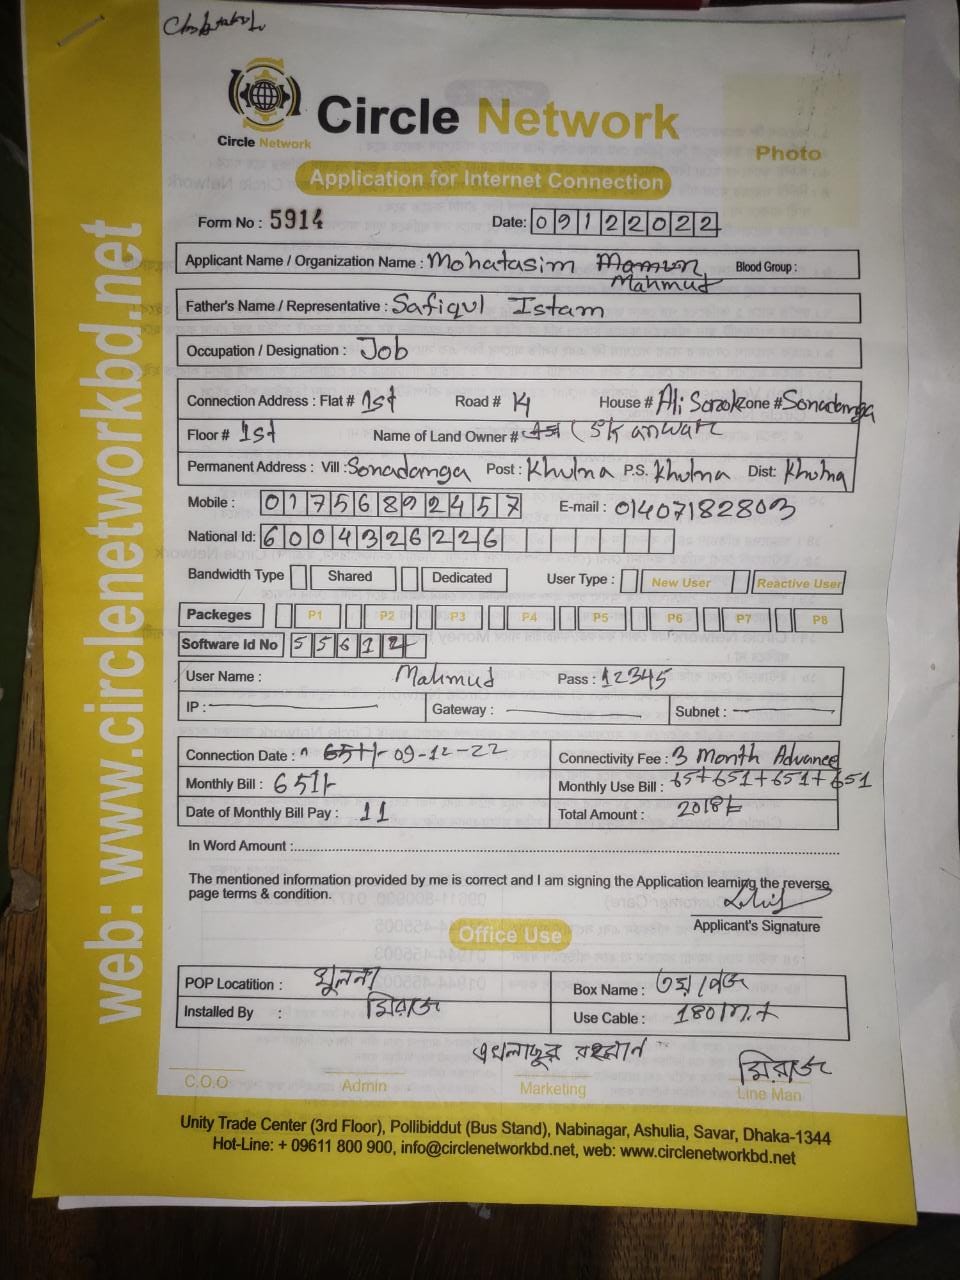 Circle Network
Circle Network
Photo
Application for Internet Connection
Form No : 5914 Date: 09122022
Applicant Name / Organization Name : Mohatasim Mamun Blood Group :
Mahmud
Father's Name / Representative : Safiqul Islam
Occupation / Designation : Job
Connection Address : Flat # 1st Road # 14 House # Ali Sorok Zone # Sonadanga
Floor # 1st Name of Land Owner # 1st ( SK anwar
Permanent Address : Vill : Sonadanga Post : Khulna P.S. Khulna Dist: Khulna
Mobile : 01756892457 E-mail : 01407182803
National Id: 6004326226
Bandwidth Type Shared Dedicated User Type : New User Reactive User
Packeges P1 P2 P3 P4 P5 P6 P7 P8
Software Id No 55612
User Name : Mahmud Pass : 12345
IP : Gateway : Subnet :
Connection Date : 651/- 09-12-22 Connectivity Fee : 3 Month Advance
Monthly Bill : 651/- Monthly Use Bill : 65+651+651+651
Date of Monthly Bill Pay : 11 Total Amount : 2018/-
In Word Amount :
The mentioned information provided by me is correct and I am signing the Application learning the reverse
page terms & condition.
Applicant's Signature
Office Use
POP Locatition : খুলনা Box Name :
Installed By : মিরাজ Use Cable : 180 m.t
এখলাছুর রহমান মিরাজ
C.O.O Admin Marketing Line Man
Unity Trade Center (3rd Floor), Pollibiddut (Bus Stand), Nabinagar, Ashulia, Savar, Dhaka-1344
Hot-Line: + 09611 800 900, info@circlenetworkbd.net, web: www.circlenetworkbd.net
web: www.circlenetworkbd.net